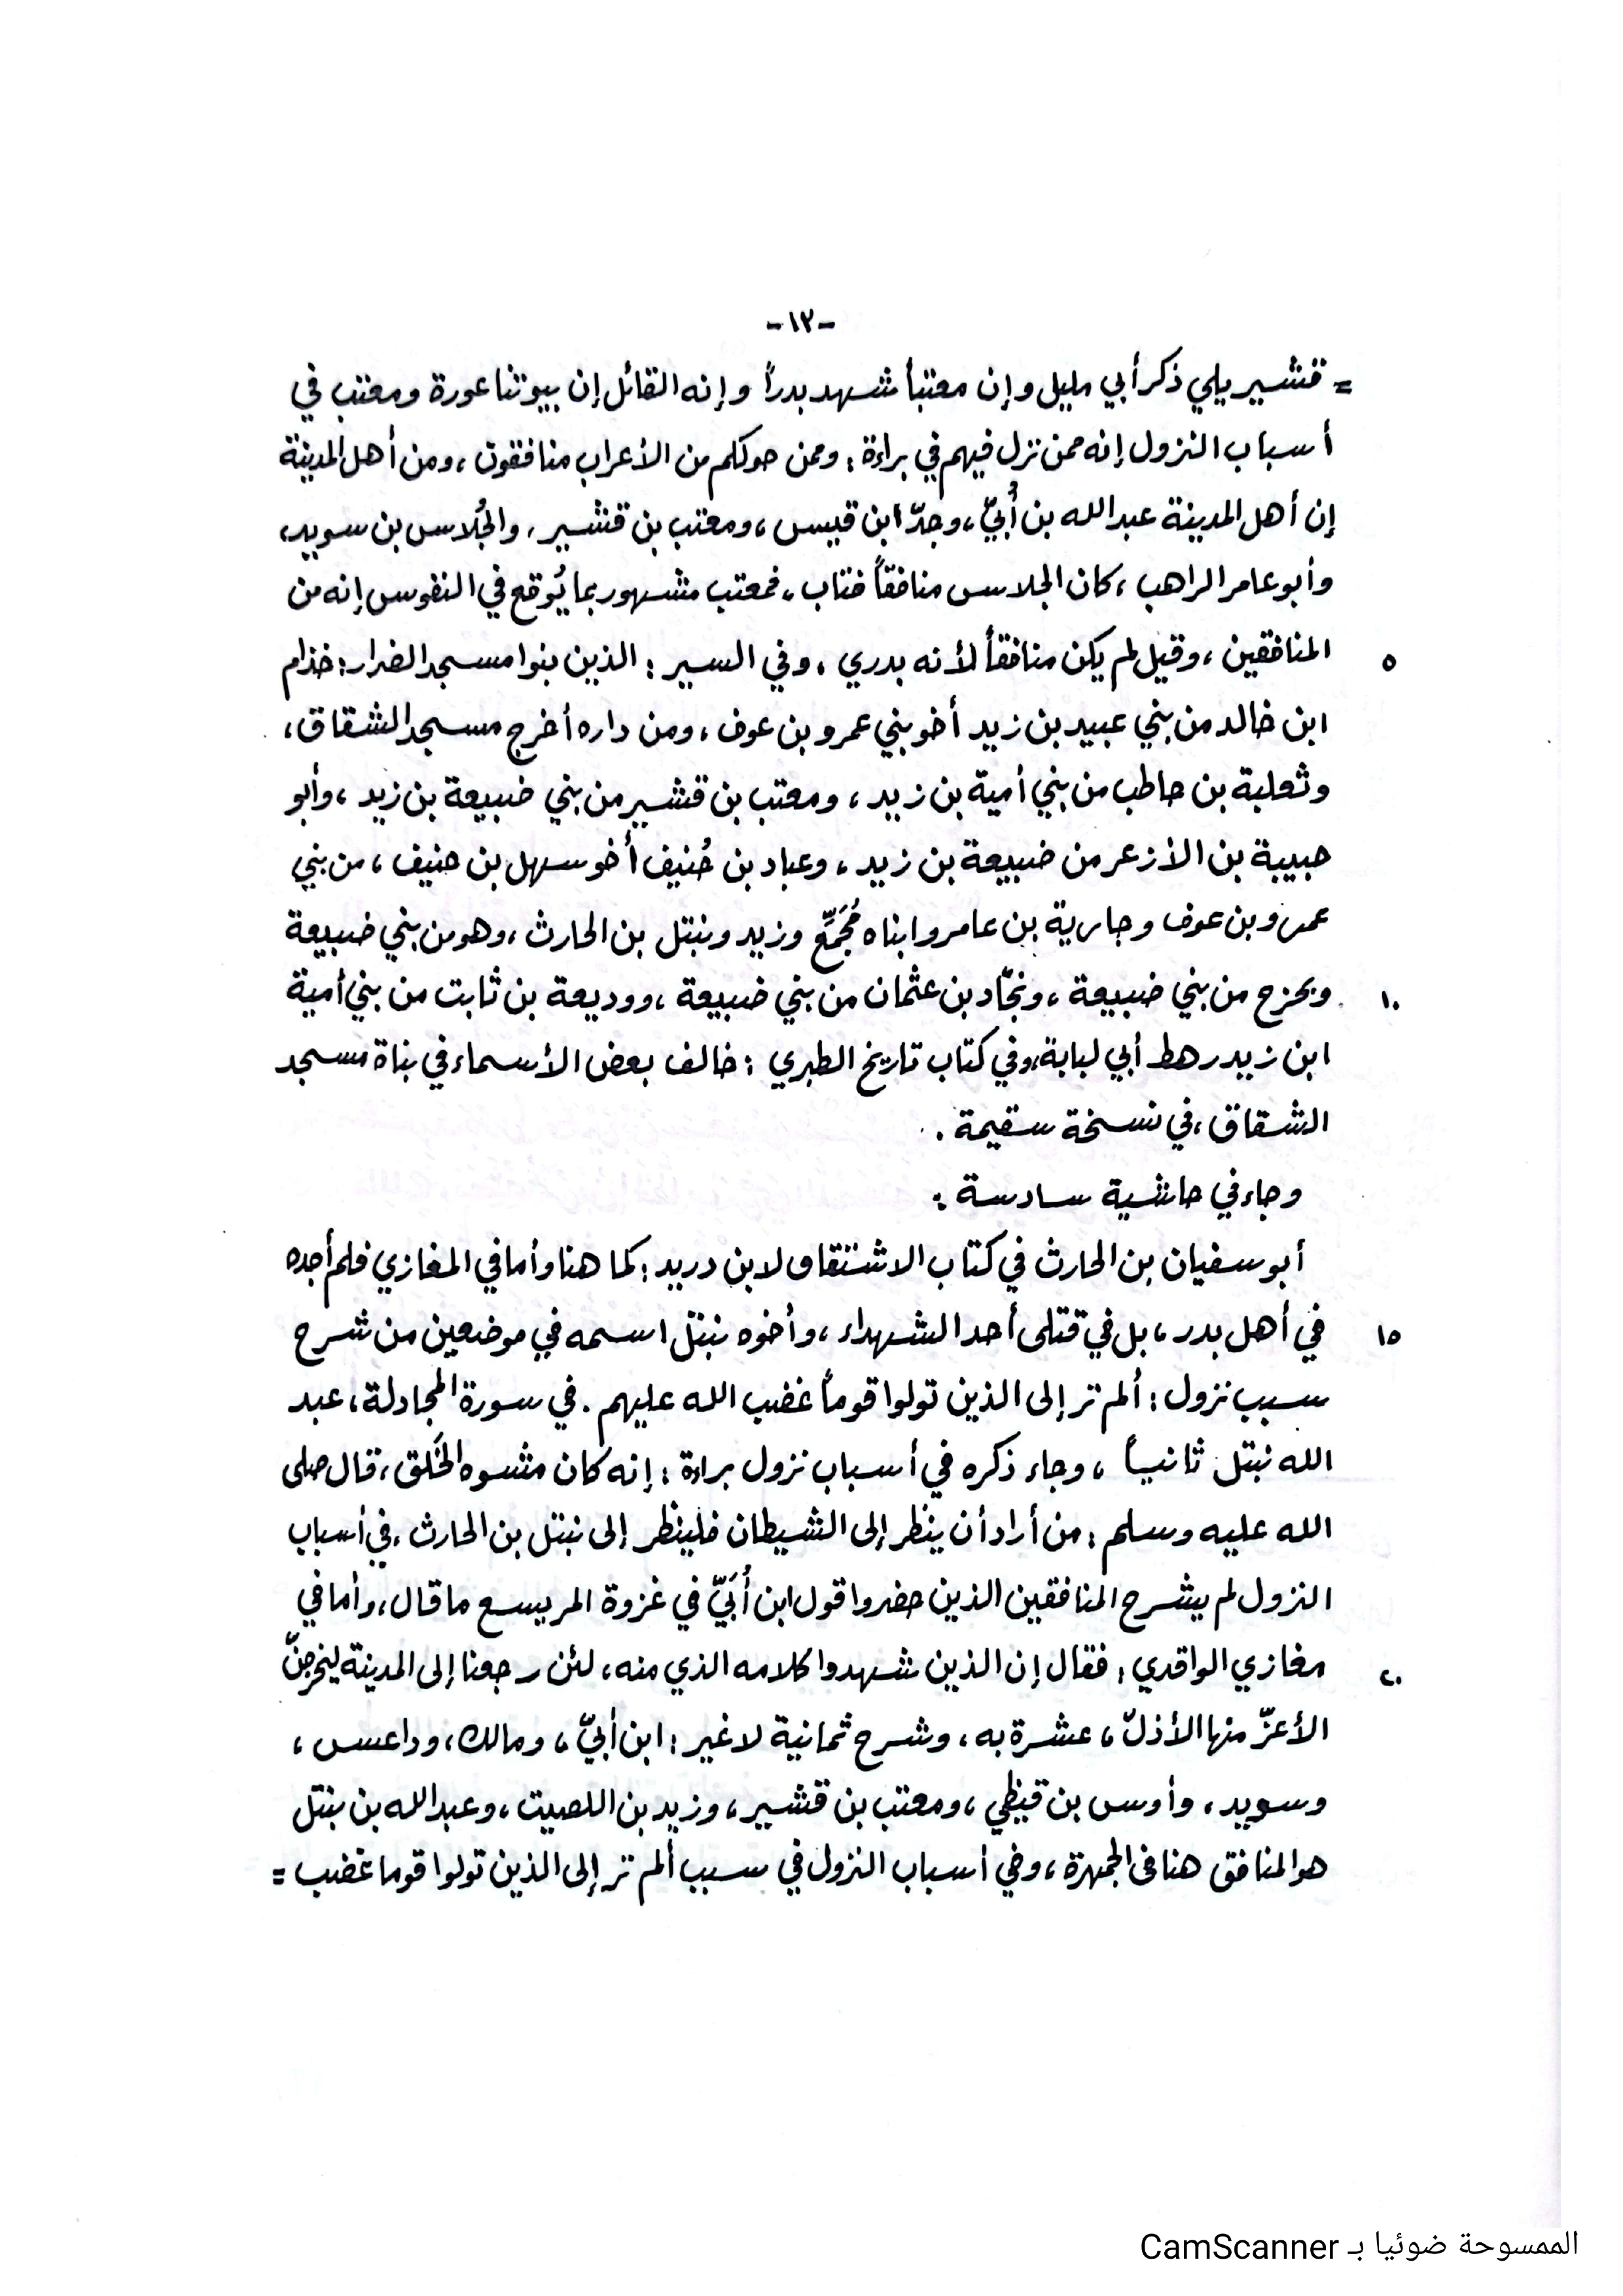 -١٣-
= قشير يلي ذكر أبي مليل وإن معتباً شهد بدراً وإنه القائل إن بيوتنا عورة ومعتب في
أسباب النزول إنه ممن نزل فيهم في براءة : وممن حولكم من الأعراب منافقون ، ومن أهل المدينة
إن أهل المدينة عبد الله بن أُبيّ ، وجدّ ابن قيس ، ومعتب بن قشير ، والجُلاس بن سويد،
وأبو عامر الراهب ، كان الجلاس منافقاً فتاب ، فمعتب مشهور بما يُوقع في النفوس إنه من
٥ المنافقين ، وقيل لم يكن منافقاً لأنه بدري ، وفي السير : الذين بنوا مسجد الضرار : خذام
ابن خالد من بني عبيد بن زيد أخو بني عمرو بن عوف ، ومن داره أخرج مسجد الشقاق ،
وثعلبة بن حاطب من بني أمية بن زيد ، ومعتب بن قشير من بني ضبيعة بن زيد ، وأبو
حبيبة بن الأزعر من ضبيعة بن زيد ، وعباد بن حُنيف أخو سهل بن حنيف ، من بني
عمرو بن عوف وجارية بن عامر وابناه مُجَمِّع وزيد ونبتل بن الحارث ، وهو من بني ضبيعة
١٠ وبحزج من بني ضبيعة ، وبجّاد بن عثمان من بني ضبيعة ، ووديعة بن ثابت من بني أمية
ابن زيد رهط أبي لبابة، وفي كتاب تاريخ الطبري : خالف بعض الأسماء في بناة مسجد
الشقاق ، في نسخة سقيمة .
وجاء في حاشية سادسة :
أبو سفيان بن الحارث في كتاب الاشتقاق لابن دريد : كما هنا وأما في المغازي فلم أجده
١٥ في أهل بدر ، بل في قتلى أحد الشهداء ، وأخوه نبتل اسمه في موضعين من شرح
سبب نزول : ألم تر إلى الذين تولوا قوماً غضب الله عليهم . في سورة المجادلة ، عبد
الله نبتل ثانياً ، وجاء ذكره في أسباب نزول براءة : إنه كان مشوه الخَلق ، قال صلى
الله عليه وسلم : من أراد أن ينظر إلى الشيطان فلينظر إلى نبتل بن الحارث ، في أسباب
النزول لم يشرح المنافقين الذين حضروا قول ابن أُبَيّ في غزوة المريسع ما قال ، وأما في
٢٠ مغازي الواقدي : فقال إن الذين شهدوا كلامه الذي منه ، لئن رجعنا إلى المدينة ليخرجنّ
الأعزّ منها الأذلّ ، عشرة به ، وشرح ثمانية لا غير : ابن أبيّ ، ومالك ، وداعس ،
وسويد ، وأوس بن قيظي ، ومعتب بن قشير ، وزيد بن اللصيت ، وعبد الله بن نبتل
هو المنافق هنا في الجمهرة ، وفي أسباب النزول في سبب ألم تر إلى الذين تولوا قوما غضب =
الممسوحة ضوئيا بـ CamScanner